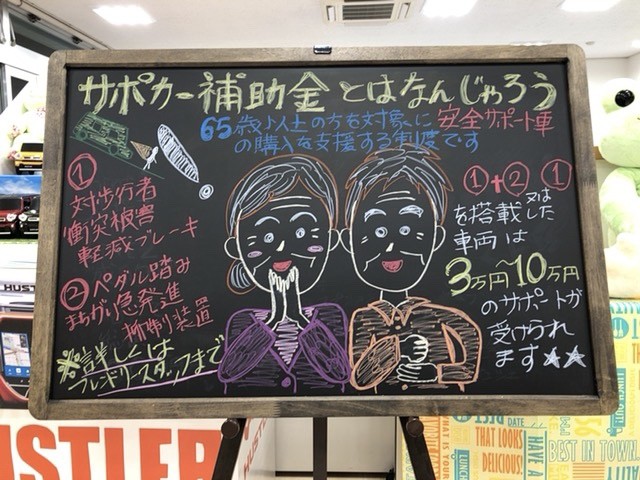 サポカー補助金とはなんじゃろう
65歳以上の方を対象に安全サポート車
の購入を支援する制度です
①
対歩行者
衝突被害
軽減ブレーキ
②ペダル踏み
まちがい急発進
抑制装置
※詳しくは
フレキリースタッフまで
①+②又は①
を搭載した
車両は
3万円~10万円
のサポートが
受けられ
ます★★
HUST
STLER
HUSTLER
DATE
THAT LOOKS
DELICIOUS!
HAVE A
BEST IN TOWN
LUNCH